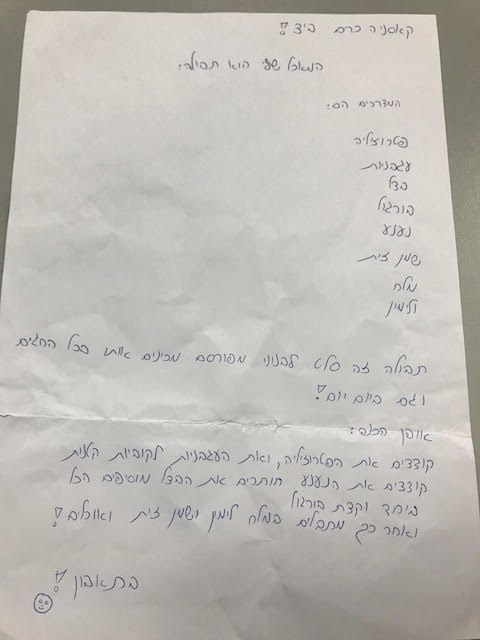 קאסניה כרם ביד!
המאכל שלי הוא תבולה:
המצרכים הם:
פטרוזיליה
עגבניות
בצל
בורגול
נענע
שמן זית
מלח
ולימון
תבולה זה סלט לבנוני מפורסם מכינים אותו בכל החגים
וגם ביום יום!
אופן הכנה:
קוצצים את הפטרוזיליה, ואת העגבניות לקוביות קטנות
קוצצים את הנענע חותכים את הבצל מוסיפים הכל
ביחד וקצת בורגול
ואחר כך מתבלים במלח לימון ושמן זית ואוכלים!
בתאבון!